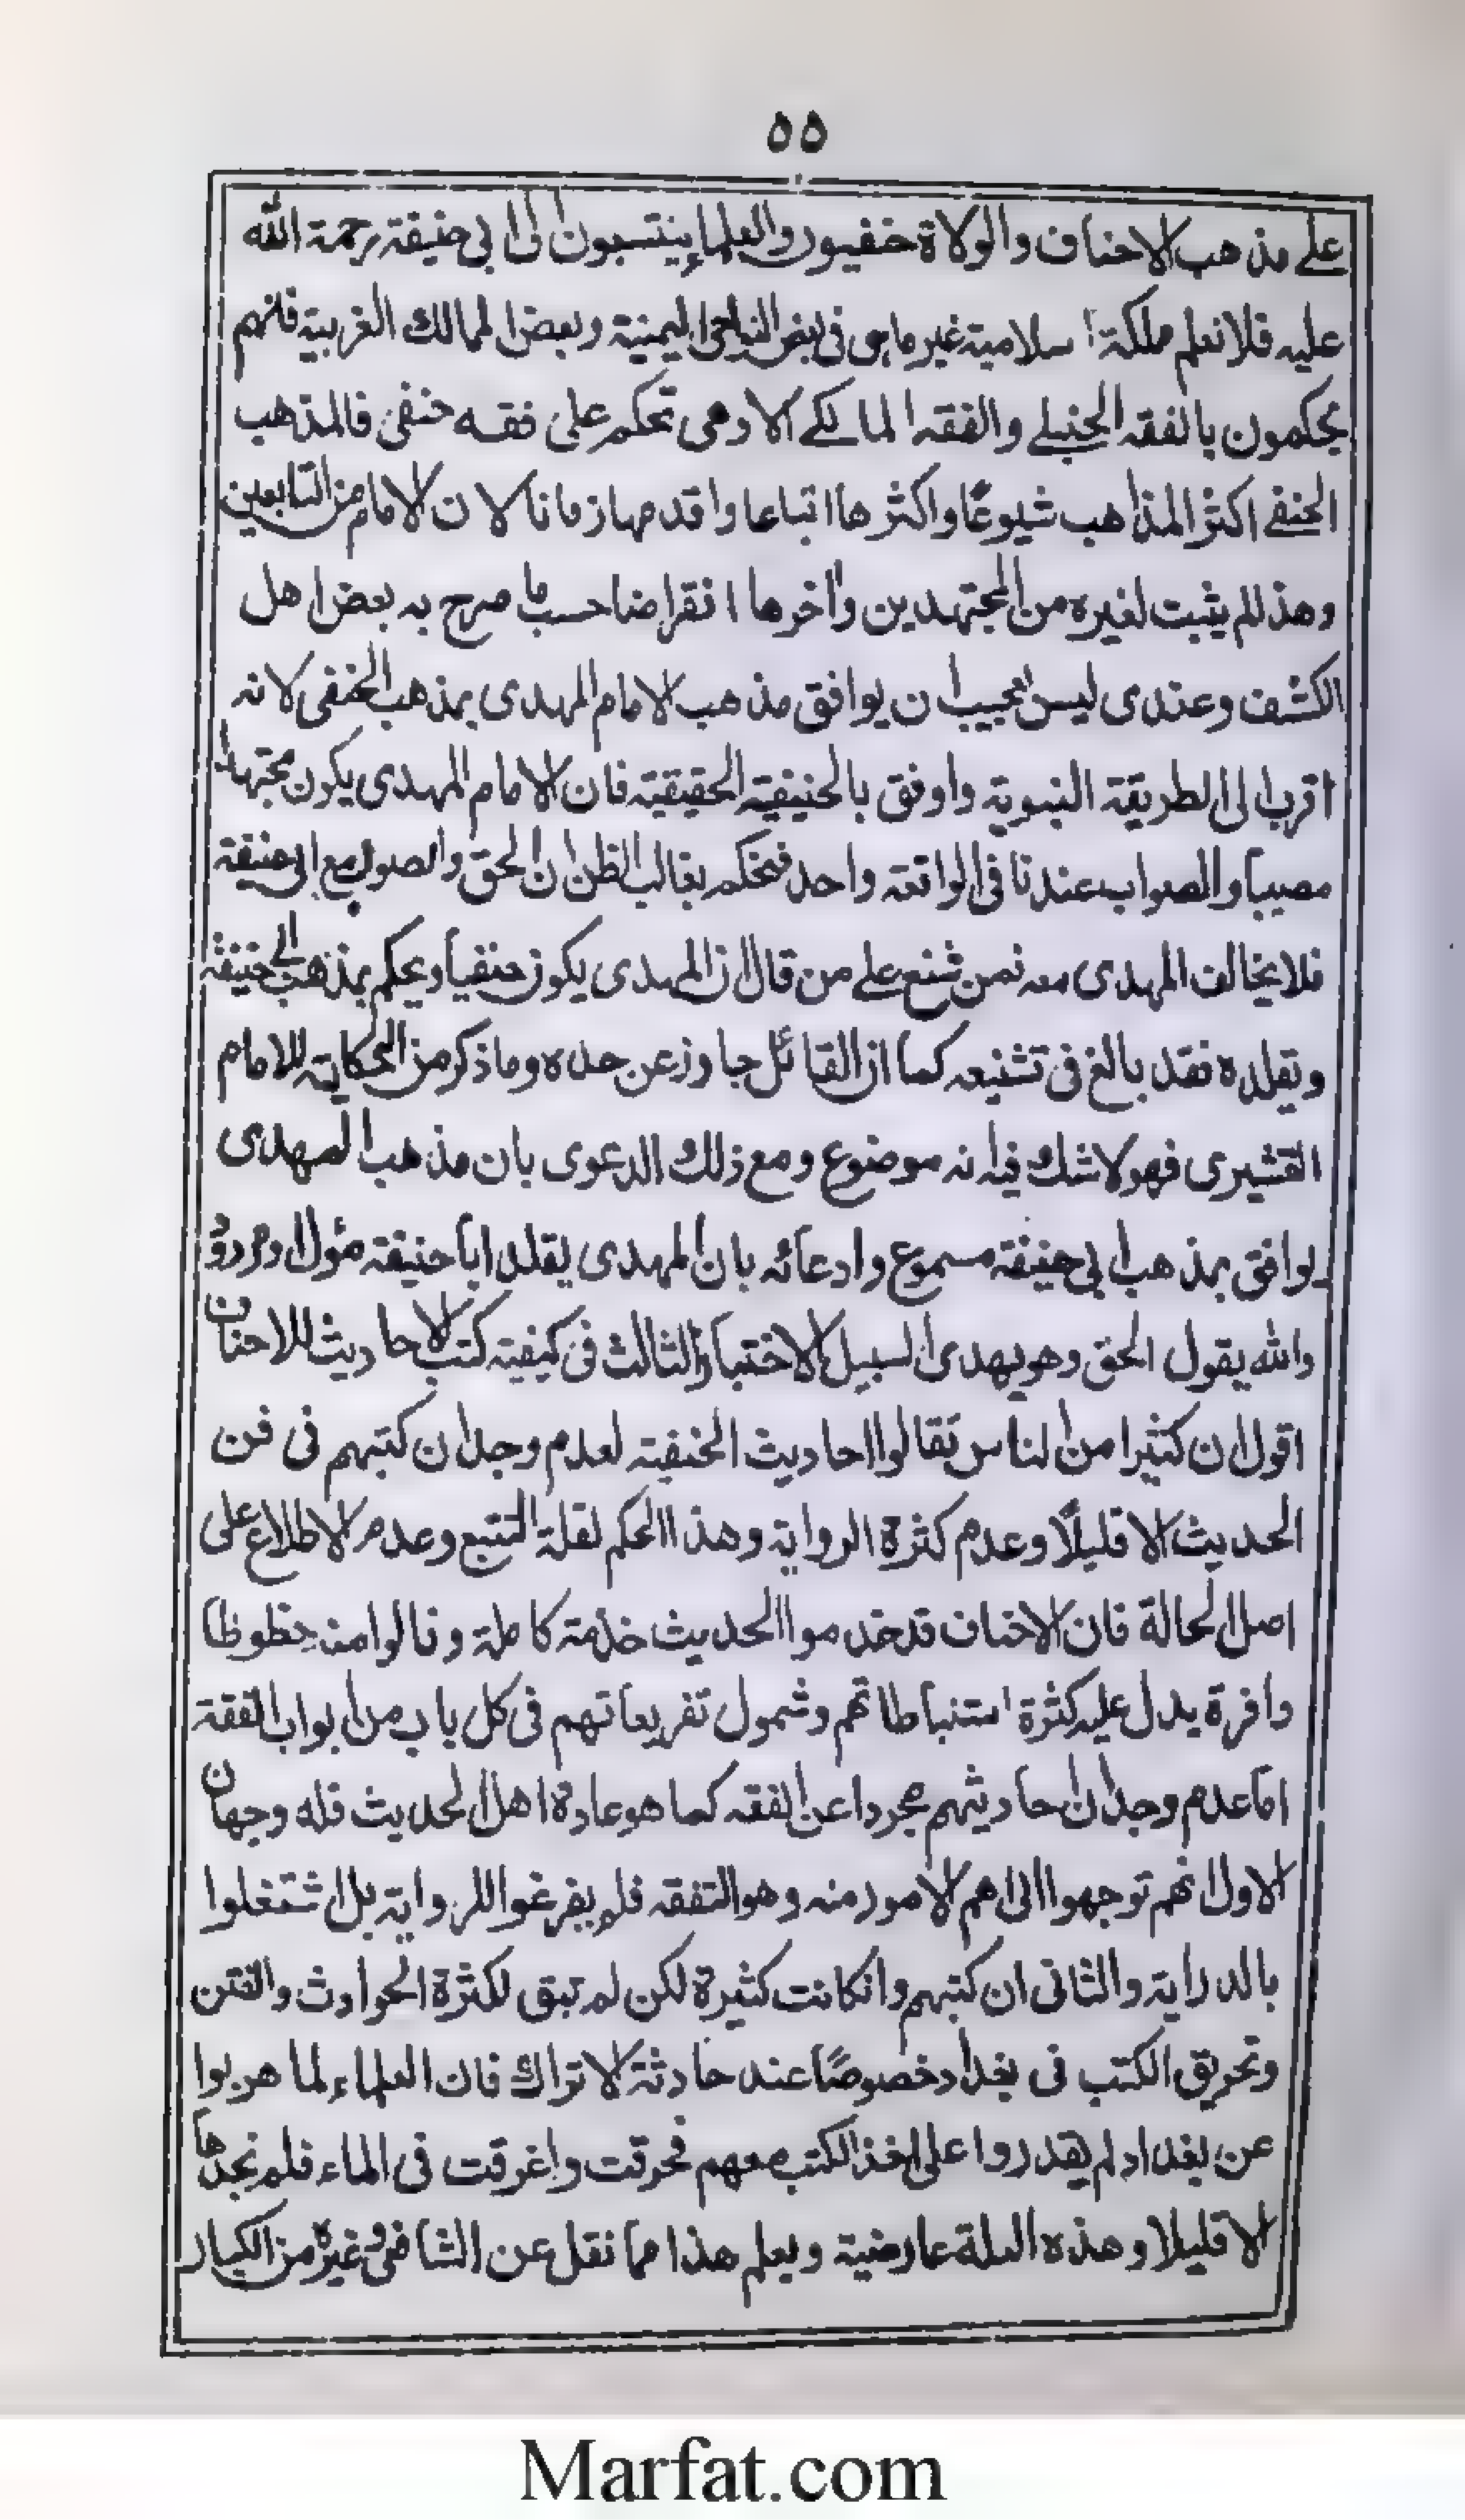 ٥٥
على مذهب الاحناف والولاة حنفيون والعلماء ينتسبون الى ابي حنيفة رحمة الله
عليه فلا نعلم مملكة اسلامية غير ما هى فى بعض النواحى اليمنية وبعض الممالك الغربية فانهم
يحكمون بالفقه الحنبلے والفقه المالكے الا وهى تحكم على فقه حنفى فالمذهب
الحنفے اكثر المذاهب شيوعًا واكثرها اتباعا واقدمها زمانا لان الامام من التابعين
وهذا لم يثبت لغيره من المجتهدين وآخرها انقراضا حسب ما صرح به بعض اهل
الكشف وعندى ليس بعجيب ان يوافق مذهب الامام المهدى بمذهب الحنفى لانه
اقرب الى الطريقة النبوية واوفق بالحنيفية الحقيقية فان الامام المهدى يكون مجتهدا
مصيبا والصواب عندنا فى الواقعة واحد فنحكم بغالب الظن ان الحق والصواب مع ابى حنيفة
فلا يخالف المهدى معه فمن شنع على من قال ان المهدى يكون حنفيا ويحكم بمذهب ابى حنيفة
ويقلده فقد بالغ فى تشنيعه كما ان القائل جاوز عن حده وما ذكر من الحكاية للامام
القشيرى فهو لا شك فيه انه موضوع ومع ذلك الدعوى بان مذهب المهدى
يوافق بمذهب ابى حنيفة مسموع وادعائه بان المهدى يقلد ابا حنيفة مؤل او مردود
والله يقول الحق وهو يهدى السبيل الاختبار الثالث فى كيفية كتب الاحاديث للاحناف
اقول ان كثيرا من الناس تقالوا احاديث الحنفية لعدم وجدان كتبهم فى فن
الحديث الا قليلًا وعدم كثرة الرواية وهذا الحكم لقلة التتبع وعدم الاطلاع على
اصل الحالة فان الاحناف قد خدموا الحديث خدمة كاملة ونالوا منه حظوظا
وافرة يدل عليه كثرة استنباطاتهم وشمول تفريعاتهم فى كل باب من ابواب الفقة
اما عدم وجدان احاديثهم مجردا عن الفقه كما هو عادة اهل الحديث فله وجهان
الاول انهم توجهوا الى اهم الامور منه وهو التفقه فلم يفرغوا للرواية بل اشتغلوا
بالدراية والثانى ان كتبهم وان كانت كثيرة لكن لم تبق لكثرة الحوادث والفتن
وتحريق الكتب فى بغداد خصوصًا عند حادثة الاتراك فان العلماء لما هربوا
عن بغداد لم يقدروا على اخذ الكتب معهم فحرقت واغرقت فى الماء فلم نجدها
الا قليلا وهذه العلة عارضية ويعلم هذا مما نقل عن الشافعى وغيره من الكبار
Marfat.com